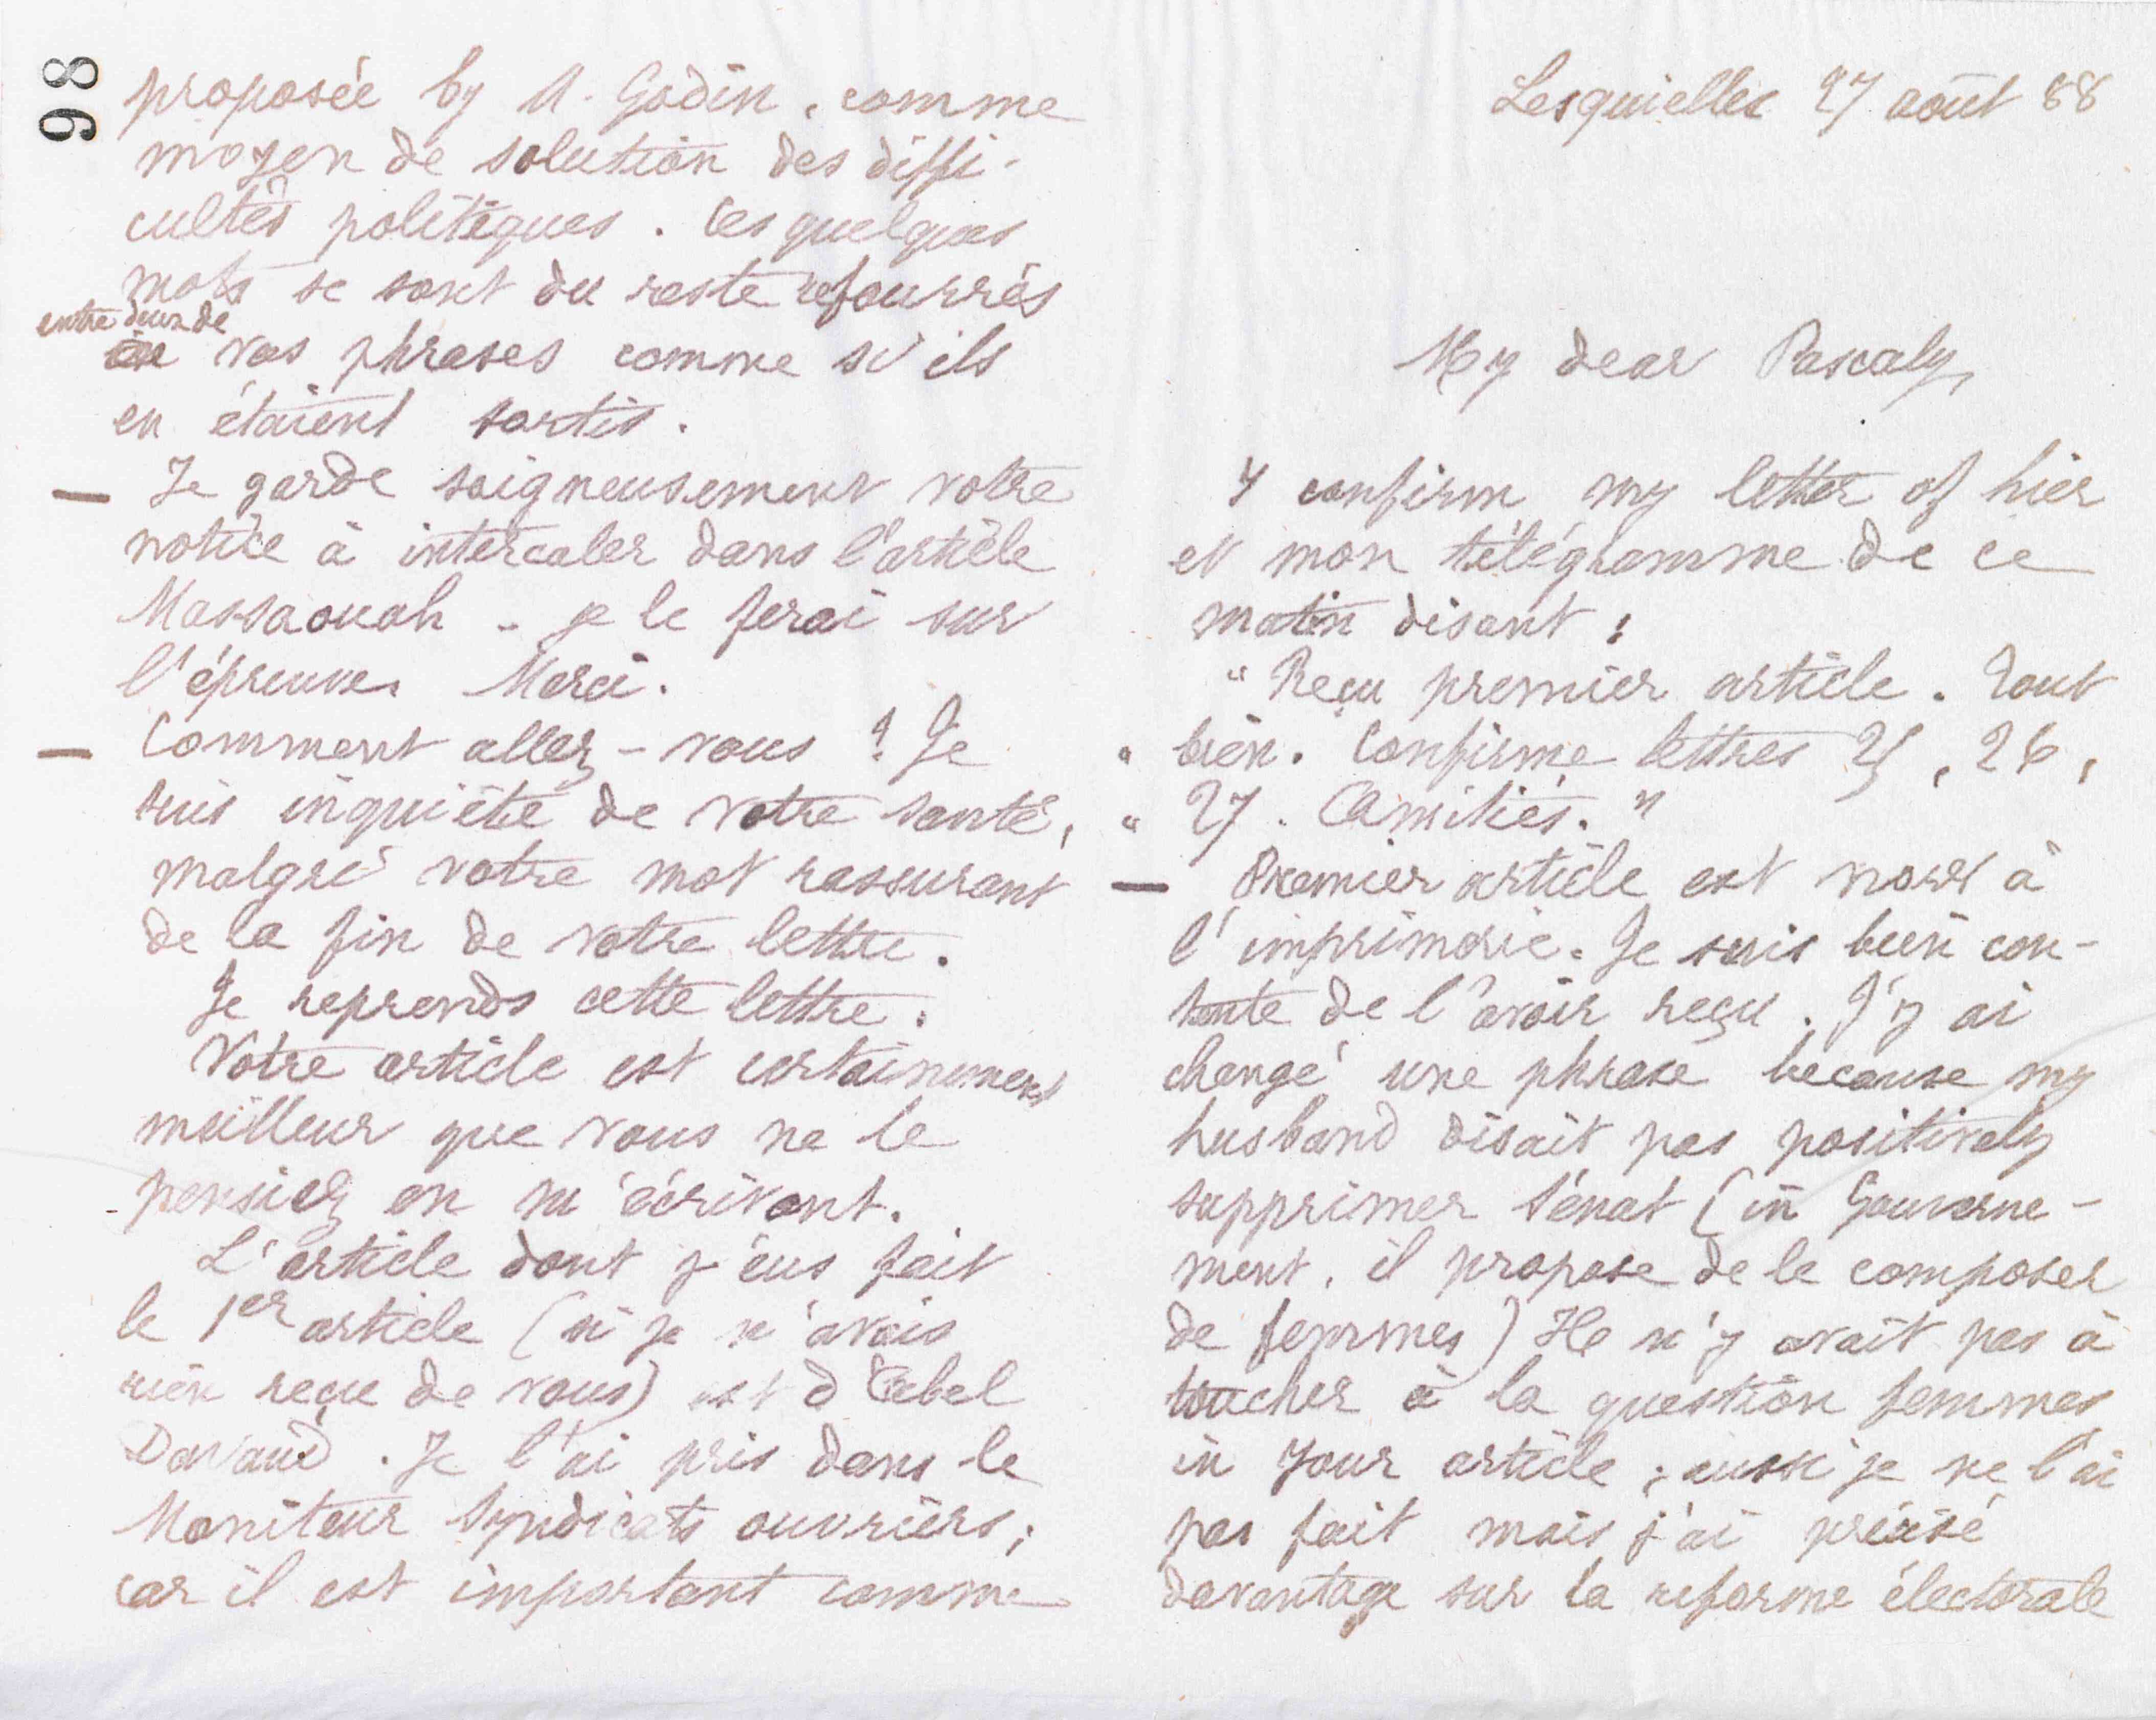 Lesquielles 27 août 88
My dear Pascaly,
I confirm my letter of hier
et mon télégramme de ce
matin disant :
" Reçu premier article. Tout
" bien. Confirme lettres 25, 26,
" 27. Amitiés. "
— Premier article est now à
l'imprimerie. Je suis bien con-
tente de l'avoir reçu. J'y ai
changé une phrase because my
husband disait pas positively
supprimer Sénat (in Gouverne-
ment, il propose de le composer
de femmes) He n'y avait pas à
toucher à la question femmes
in your article ; aussi je ne l'ai
pas fait mais j'ai précisé
davantage sur la réforme électorale
98
proposée by M. Godin, comme
moyen de solution des diffi-
cultés politiques. Ces quelques
mots se sont du reste refourrés
entre deux de
vos phrases comme s'ils
en étaient sortis.
— Je garde soigneusement votre
notice à intercaler dans l'article
Massaouah - je le ferai sur
l'épreuve. Merci.
— Comment allez-vous ? Je
suis inquiète de votre santé,
malgré votre mot rassurant
de la fin de votre lettre.
Je reprends cette lettre.
Votre article est certainement
meilleur que vous ne le
pensiez en m'écrivant.
L'article dont j'eus fait
le 1er article (si je n'avais
rien reçu de vous) est d'Abel
Davaud. Je l'ai pris dans le
Moniteur Syndicats ouvriers ;
car il est important comme